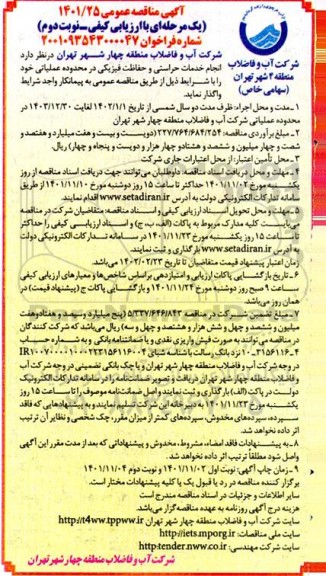 آگهی مناقصه عمومی ۱۴۰۱/۲۵
(یک مرحله‌ای با ارزیابی کیفی - نوبت دوم)
شماره فراخوان ۲۰۰۱۰۹۳۵۴۳۰۰۰۰۴۷
شرکت آب و فاضلاب
منطقه ۴ شهر تهران
(سهامی خاص)
شرکت آب و فاضلاب منطقه چهار شهر تهران در نظر دارد
انجام خدمات حراستی و حفاظت فیزیکی در محدوده عملیاتی خود
را با شرایط ذیل از طریق مناقصه عمومی به پیمانکار واجد شرایط
واگذار نماید.
۱-مدت و محل اجراء: ظرف مدت دو سال شمسی از تاریخ ۱۴۰۲/۱/۱ لغایت ۱۴۰۳/۱۲/۳۰ در
محدوده عملیاتی شرکت آب و فاضلاب منطقه چهار شهر تهران
۲- مبلغ برآوردی مناقصه: ۲۲۷/۷۶۴/۶۸۴/۲۵۴ (دویست و بیست و هفت میلیارد و هفتصد و
شصت و چهار میلیون و ششصد و هشتاد و چهار هزار و دویست و پنجاه و چهار) ریال.
۳-محل تأمین اعتبار: از محل اعتبارات جاری شرکت
۴-مهلت و محل دریافت اسناد مناقصه: داوطلبان می‌توانند جهت دریافت اسناد مناقصه از روز
یکشنبه مورخ ۱۴۰۱/۱۱/۰۲ حداکثر تا ساعت ۱۵ روز دوشنبه مورخ ۱۴۰۱/۱۱/۱۰ از طریق
سامانه تدارکات الکترونیکی دولت به آدرس www.setadiran.ir اقدام نمایند.
۵-مهلت و محل تحویل اسناد ارزیابی کیفی و اسناد مناقصه: متقاضیان شرکت در مناقصه
می‌بایست کلیه مدارک مربوط به پاکات (الف، ب، ج) و اسناد ارزیابی کیفی را حداکثر
تا ساعت ۱۵ روز یکشنبه مورخ ۱۴۰۱/۱۱/۲۳ در سامانه تدارکات الکترونیکی دولت
به آدرس www.setadiran.ir بارگذاری و ثبت نمایند.
زمان اعتبار پیشنهاد قیمت متقاضیان تا تاریخ ۱۴۰۲/۰۲/۲۳ می‌باشد.
۶- تاریخ بازگشایی پاکات ارزیابی و امتیازدهی براساس شاخص‌ها و معیارهای ارزیابی کیفی
ساعت ۹ صبح روز دوشنبه مورخ ۱۴۰۱/۱۱/۲۴ و بازگشایی پاکات ج (پیشنهاد قیمت) در
همان روز می‌باشد.
۷- مبلغ تضمین شرکت در مناقصه ۵/۳۳۷/۶۴۶/۸۴۳ (پنج میلیارد و سیصد و هفتادوهفت
میلیون و ششصد و چهل و شش هزار و هشتصد و چهل و سه) ریال می‌باشد که شرکت کنندگان
در مناقصه می‌توانند به صورت فیش واریزی نقدی و یا ضمانتنامه بانکی و به شماره حساب
در وجه شرکت آب و فاضلاب منطقه چهار شهر تهران و یا چک بانکی تضمینی در وجه شرکت آب
و فاضلاب منطقه چهار شهر تهران دریافت و تصویر ضمانتنامه را در سامانه تدارکات الکترونیک
دولت در پاکت (الف) بارگذاری و ثبت نمایند و اصل ضمانتنامه موصوف را تا ساعت ۱۵ روز
یکشنبه مورخ ۱۴۰۱/۱۱/۲۳ به دبیرخانه این شرکت تسلیم نمایند و به پیشنهادهایی که فاقد
سپرده، سپرده‌های مخدوش، سپرده‌های کمتر از میزان مقرر، چک شخصی و نظایر آن ترتیب
اثر داده نخواهد شد.
۸- به پیشنهادات فاقد امضاء، مشروط، مخدوش و پیشنهاداتی که بعد از مدت مقرر این آگهی
واصل شود مطلقاً ترتیب اثر داده نخواهد شد.
۹- زمان چاپ آگهی: نوبت اول ۱۴۰۱/۱۱/۰۲ و نوبت دوم ۱۴۰۱/۱۱/۰۴
برگزار کننده مناقصه در رد یا قبول یک یا کلیه پیشنهادات مختار است.
سایر اطلاعات و جزئیات در اسناد مناقصه مندرج است
هزینه درج آگهی روزنامه به عهده مناقصه‌گزار می‌باشد.
سایت شرکت آب و فاضلاب منطقه چهار شهر تهران http://t4ww.tppww.ir
سایت ملی مناقصات: http://iets.mporg.ir
سایت شرکت مهندسی: http:tender.nww.co.ir
شرکت آب و فاضلاب منطقه چهار شهر تهران